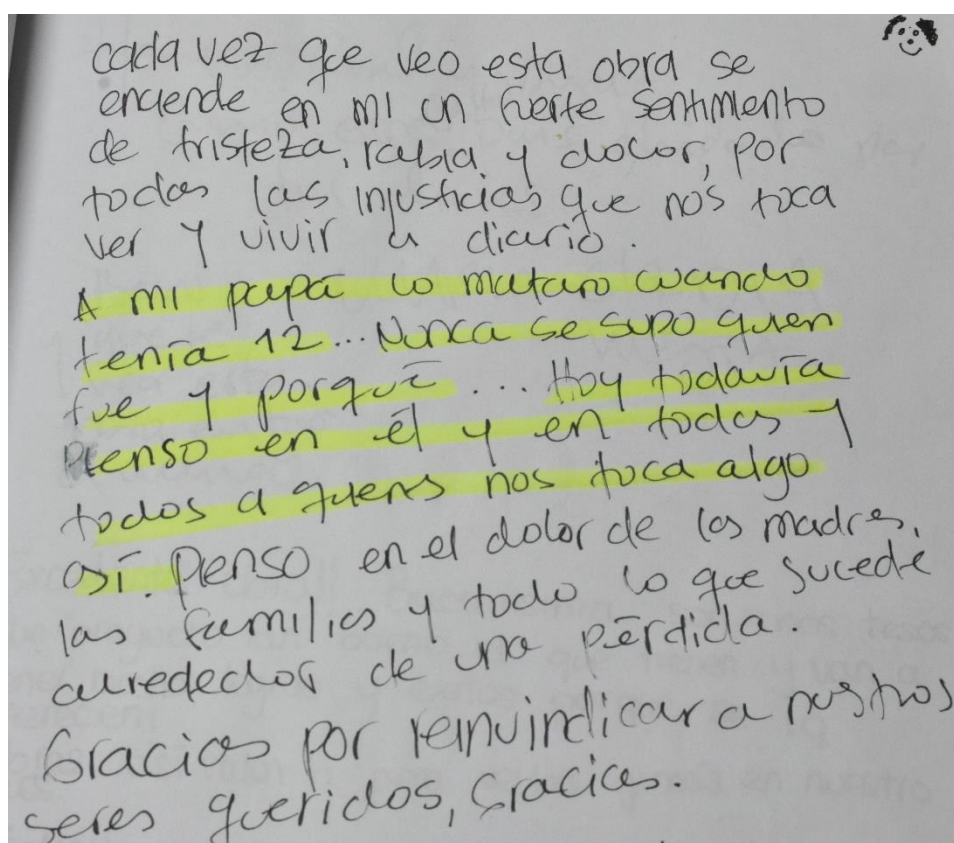 cada vez que veo esta obra se
enciende en mi un fuerte sentimiento
de tristeza, rabia y dolor, por
todas las injusticias que nos toca
ver y vivir a diario.
A mi papá lo mataro cuando
tenía 12... Nunca se supo quien
fue y porqué ... Hoy todavía
Pienso en él y en todas y
todos a quens nos toca algo
así. Pienso en el dolor de las madres,
las familias y todo lo que sucede
alrededor de una pérdida.
Gracias por reinvindicar a nustros
seres queridos, Gracias.